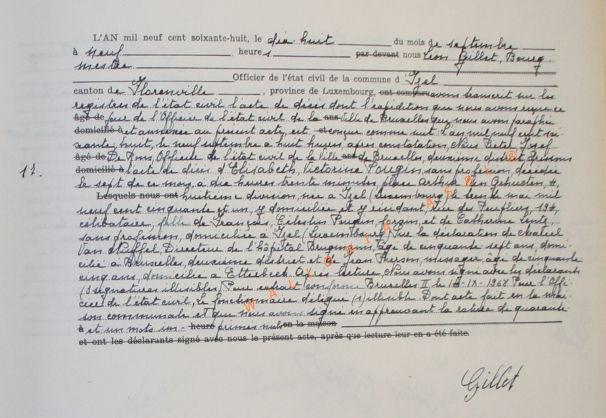 L'AN mil neuf cent soixante-huit, le dix huit du mois de septembre
à neuf heures par devant nous Léon Gillet, Bourg
mestre
Officier de l'état civil de la commune d Izel
canton de Florenville, province de Luxembourg, ont comparu avons transcrit sur les
registres de l'état civil l'acte de décès dont l'expédition que nous avons reçue ce
âgé de jour de l'Officier de l'état civil de la ans Ville de Bruxelles que nous avons paraphée
domicilié à et annexée au présent acte, est et conçue comme suit L'an mil neuf cent soi
xante huit, le neuf septembre à huit heures, après constatation, Nous Pieter Jozef
âgé de De Rons, Officier de l'état civil de la Ville ans de Bruxelles, deuxième district dressons
domicilié à l'acte de décès d'Elisabeth, Victorine Pougin, sans profession, décédée
le sept de ce mois, à dix heures trente minutes place Arthur Van Gehuchten, 4,
Lesquels nous ont huitième division, née à Izel (Luxembourg) le seize mai mil
neuf cent cinquante et un, y domiciliée et y résidant
célibataire, fille de François, Célestin Pougin, et de Catherine
sans profession, domiciliés à Izel (Luxembourg) Sur la déclaration de Marcel
Van Directeur de l'hôpital Brugmann, âgé de cinquante sept ans, domi-
cilié à Bruxelles, deuxième district et de Jean messager, âgé de cinquante
cinq ans, domicilié à Etterbeek. Après lecture, Nous avons signé avec les déclarants
(3 signatures illisibles) Pour extrait conforme Bruxelles II le IX-1968 Pour l'Offi
cier de l'état civil, le fonctionnaire délégué (s) illisible. Dont acte fait en la mai
son communale et que nous avons signé en approuvant la rature de quarante
à et un mots im- heure primés nuls en la maison
et ont les déclarants signé avec nous le présent acte, après que lecture leur en a été faite.
Gillet
13.